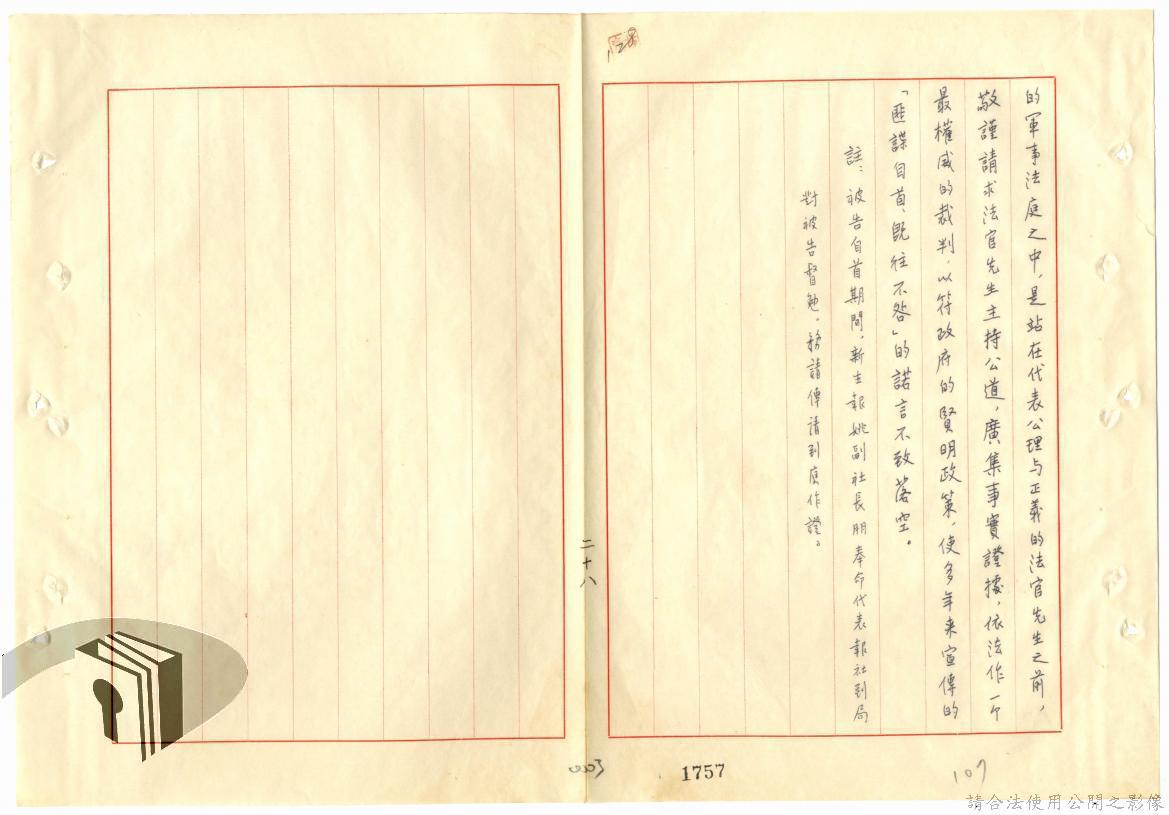 的軍事法庭之中，是站在代表公理与正義的法官先生之前，
敬謹請求法官先生主持公道，廣集事實證據，依法作一个
最權威的裁判，以符政府的賢明政策，使多年来宣傳的
「匪諜自首、既往不咎」的諾言不致落空。
註：被告自首期間，新生報姚副社長朋奉命代表報社到局
對被告督勉。務請傳請到庭作證。
二十八
128
0003
1757
107
請合法使用公開之影像